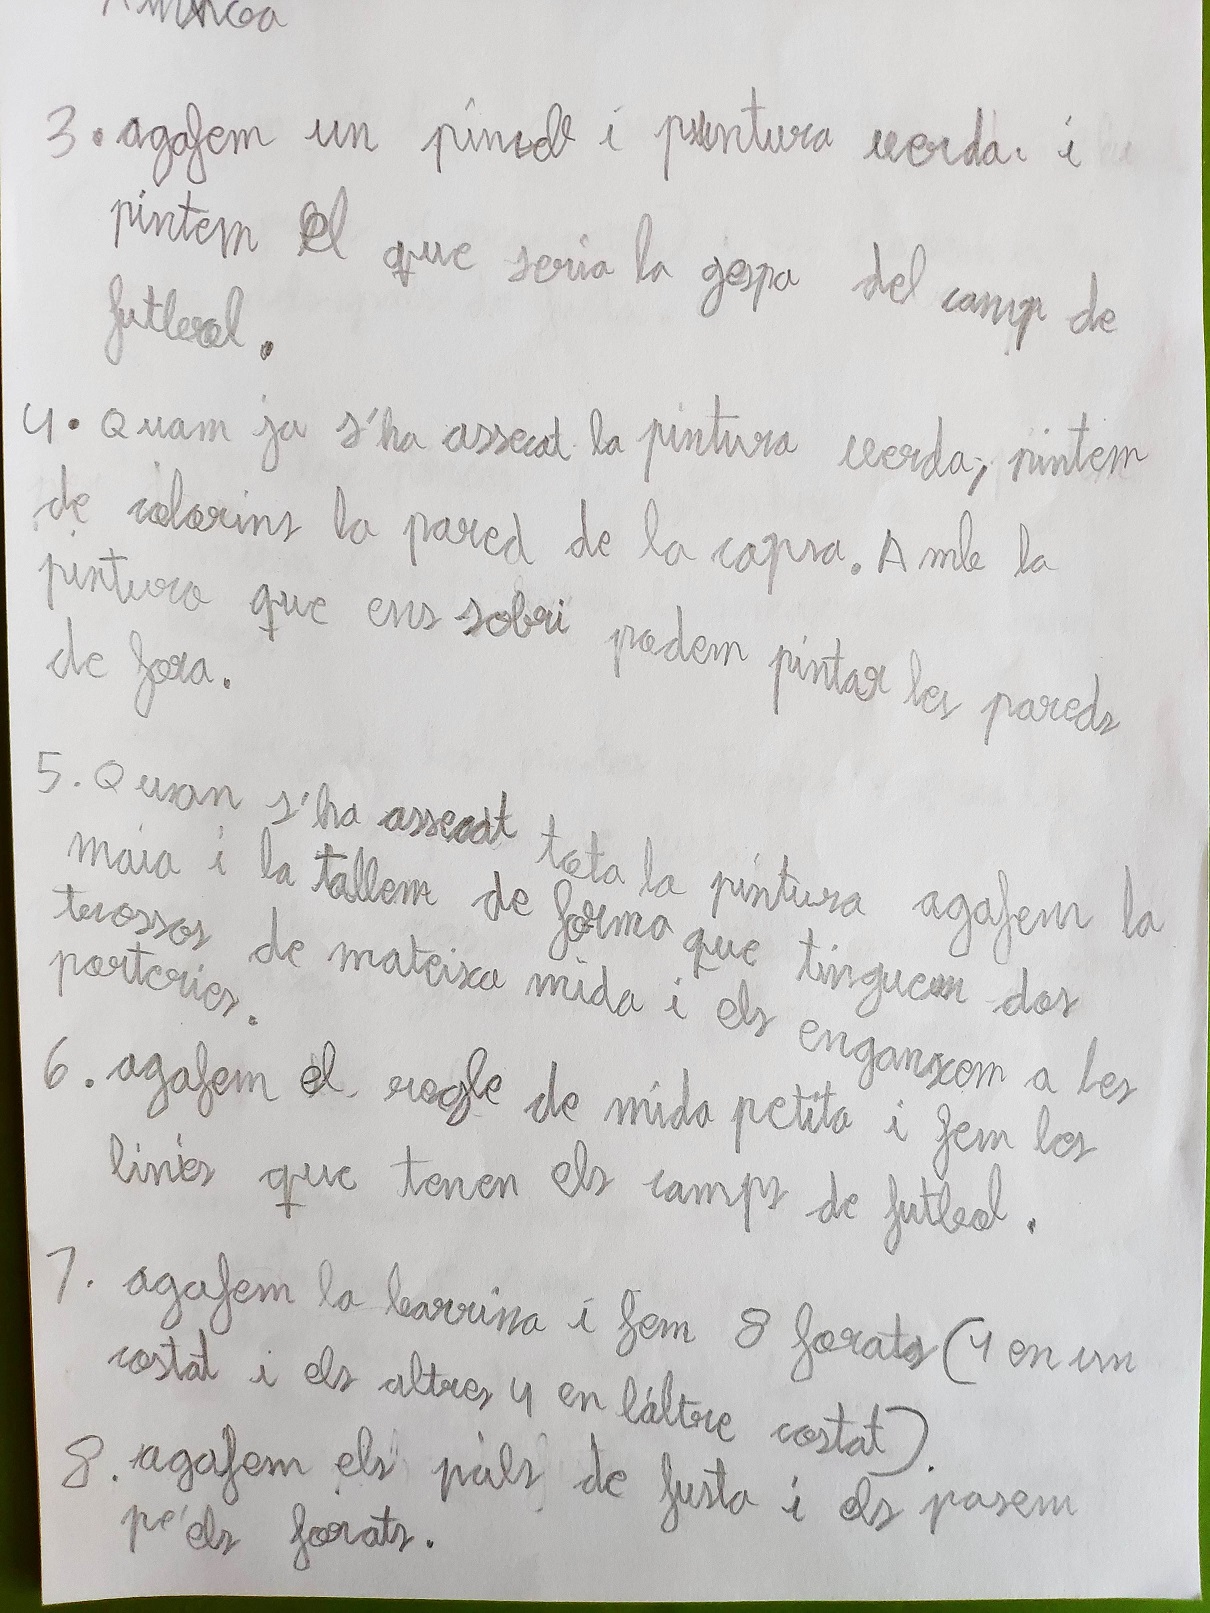 3. agafem un pincell i pintura verda. i
pintem el que seria la gespa del camp de
futbol.
4. Quam ja s'ha assecat la pintura verda, pintem
de colorins la pared de la capsa. Amb la
pintura que ens sobri podem pintar les pareds
de fora.
5. Quan s'ha assecat tota la pintura agafem la
maia i la tallem de forma que tinguem dos
trossos de mateixa mida i els enganxem a les
porteries.
6. agafem el regle de mida petita i fem les
linies que tenen els camps de futbol.
7. agafem la barrina i fem 8 forats (4 en un
costat i els altres 4 en l'altre costat).
8. agafem els pals de fusta i els pasem
pe'els forats.